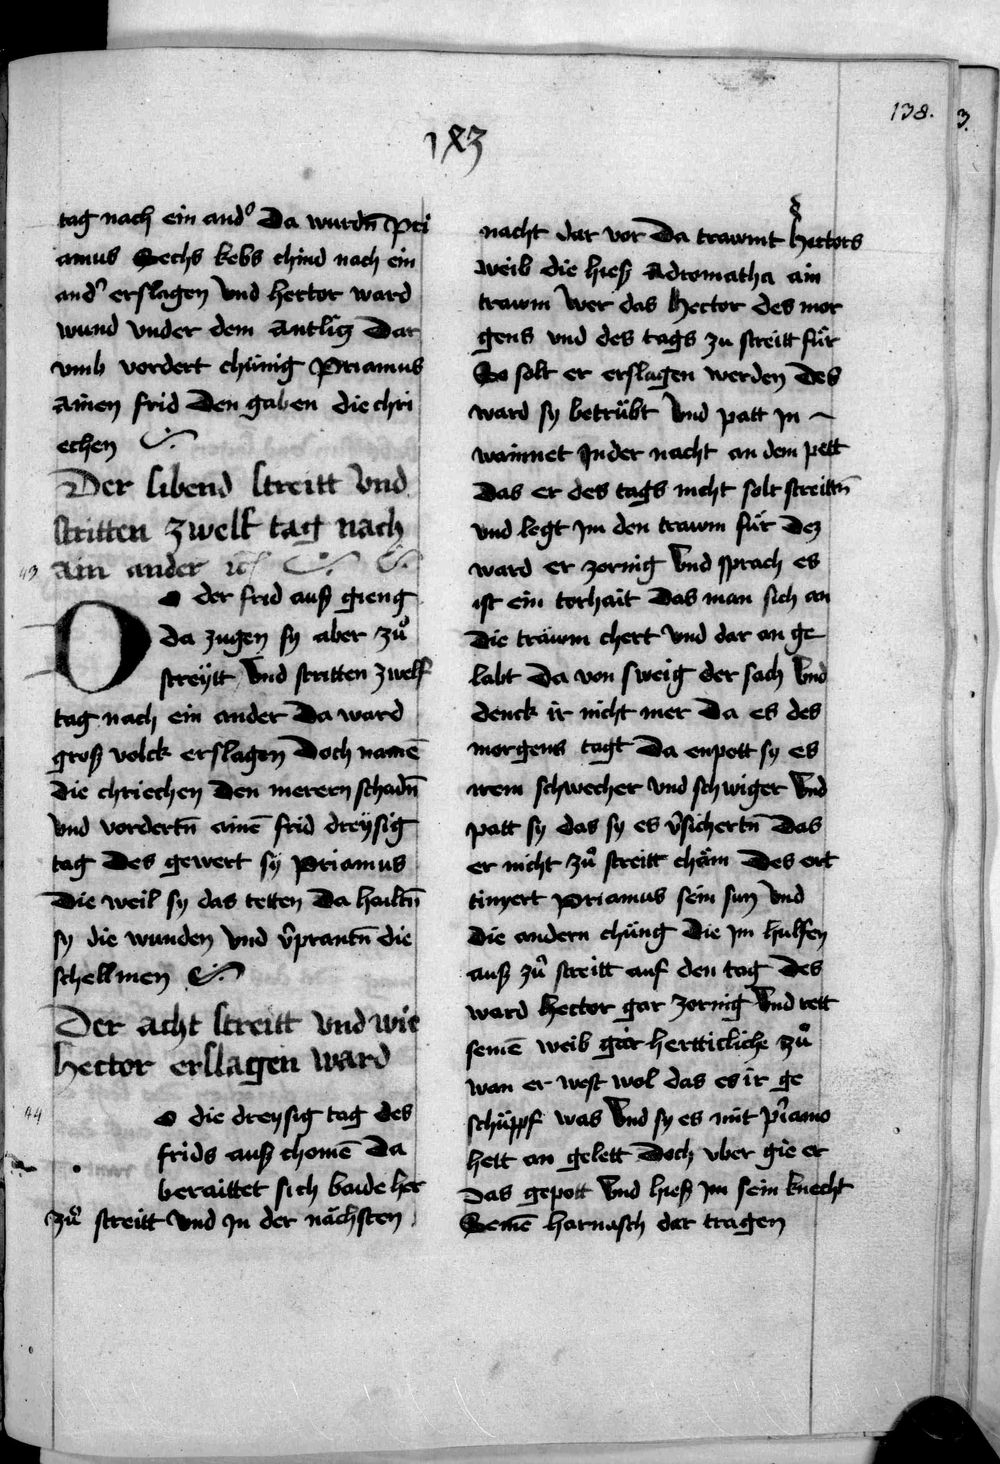 138.
3.
183
tag nach ein and° Da wurdn̄ Pri
amus Sechs kebs chind nach ein
and° erslagen Vnd hector ward
wund vnder dem Antlitz Dar
vmb vordert chünig Priamus
Ainen frid Den gaben die chri
echen
Der sibend streitt Vnd
stritten zwelf tag nach
43
ain ander
O der frid auß gieng
da zugen sy aber zů
streytt Vnd stritten zwelf
tag nach ein ander Da ward
groß volck erslagen Doch namē
die chriechen Den merern schadn̄
Vnd vordertn̄ ainē frid dreysig
tag Des gewert sy Priamus
Die weil sy das tetten Da hailtn̄
sy die wunden Vnd v̄prantn̄ die
schellmen
Der acht streitt vnd wie
Hector erslagen ward
44
o die dreysig tag des
frids auß chomē Da
beraittet sich baide her
zů streitt Vnd In der nächsten
nacht dar vor Da trawmt hectors
weib die hieß Adromatha ain
trawm Wer das Hector des mor
gens vnd des tags zu streitt für
So solt er erslagen werden Des
ward sy betrübt Vnd patt In
wainnet In der nacht an dem pett
Das er des tags nicht solt streittn̄
vnd legt Im den trawm für Dez
ward er zornig Vnd sprach es
ist ein torhait Das man sich an
Die träwm chert Vnd dar an ge
labt Da von sweig der sach Vnd
denck ir nicht mer Da es des
morgens tagt Da enpott sy es
irem schwecher vnd schwiger Vnd
patt sy das sy es v̄sichertn̄ Das
er nicht zů streitt chäm Des ort
tinyert Priamus sein sun Vnd
Die andern chüng Die Im hulfen
auß zů streitt auf den tag Des
ward Hector gar zornig Vnd rett
seinē weib gar hertticliche zů
wan er west wol das es ir ge
schüppf was Vnd sy es mit priamo
hett an gelett Doch vber gie er
Das gepott Vnd hieß Im sein knecht
Seinē harnasch dar tragen